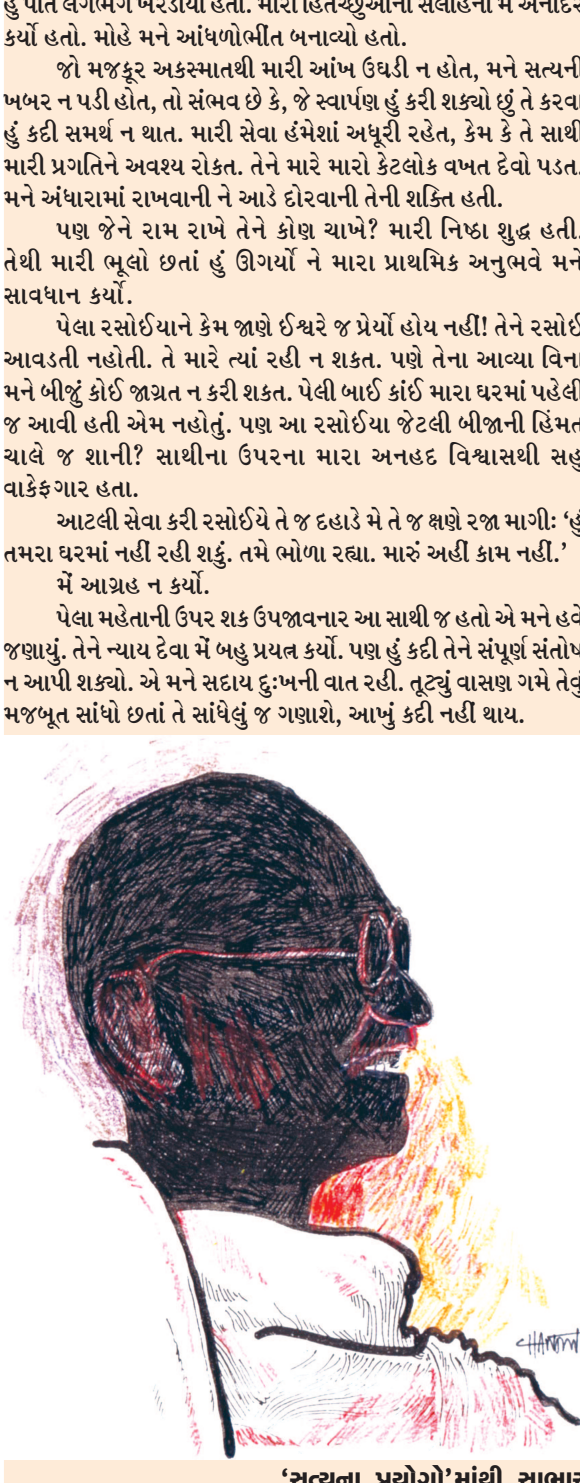 હું પોતે લગભગ ખરડાયો હતો. મારા હિતેચ્છુઓની સલાહનો મેં અનાદર
કર્યો હતો. મોહે મને આંધળોભીંત બનાવ્યો હતો.
જો મજકૂર અકસ્માતથી મારી આંખ ઉઘડી ન હોત, મને સત્યની
ખબર ન પડી હોત, તો સંભવ છે કે, જે સ્વાર્પણ હું કરી શક્યો છું તે કરવા
હું કદી સમર્થ ન થાત. મારી સેવા હંમેશાં અધૂરી રહેત, કેમ કે તે સાથી
મારી પ્રગતિને અવશ્ય રોકત. તેને મારે મારો કેટલોક વખત દેવો પડત.
મને અંધારામાં રાખવાની ને આડે દોરવાની તેની શક્તિ હતી.
પણ જેને રામ રાખે તેને કોણ ચાખે? મારી નિષ્ઠા શુદ્ધ હતી.
તેથી મારી ભૂલો છતાં હું ઊગર્યો ને મારા પ્રાથમિક અનુભવે મને
સાવધાન કર્યો.
પેલા રસોઈયાને કેમ જાણે ઈશ્વરે જ પ્રેર્યો હોય નહીં! તેને રસોઈ
આવડતી નહોતી. તે મારે ત્યાં રહી ન શકત. પણે તેના આવ્યા વિના
મને બીજું કોઈ જાગ્રત ન કરી શકત. પેલી બાઈ કાંઈ મારા ઘરમાં પહેલી
જ આવી હતી એમ નહોતું. પણ આ રસોઈયા જેટલી બીજાની હિંમત
ચાલે જ શાની? સાથીના ઉપરના મારા અનહદ વિશ્વાસથી સહુ
વાકેફગાર હતા.
આટલી સેવા કરી રસોઈયે તે જ દહાડે મે તે જ ક્ષણે રજા માગીઃ ‘હું
તમરા ઘરમાં નહીં રહી શકું. તમે ભોળા રહ્યા. મારું અહીં કામ નહીં.’
મેં આગ્રહ ન કર્યો.
પેલા મહેતાની ઉપર શક ઉપજાવનાર આ સાથી જ હતો એ મને હવે
જણાયું. તેને ન્યાય દેવા મેં બહુ પ્રયત્ન કર્યો. પણ હું કદી તેને સંપૂર્ણ સંતોષ
ન આપી શક્યો. એ મને સદાય દુઃખની વાત રહી. તૂટ્યું વાસણ ગમે તેવું
મજબૂત સાંધો છતાં તે સાંધેલું જ ગણાશે, આખું કદી નહીં થાય.
‘સત્યના પ્રયોગો’માંથી સાભાર